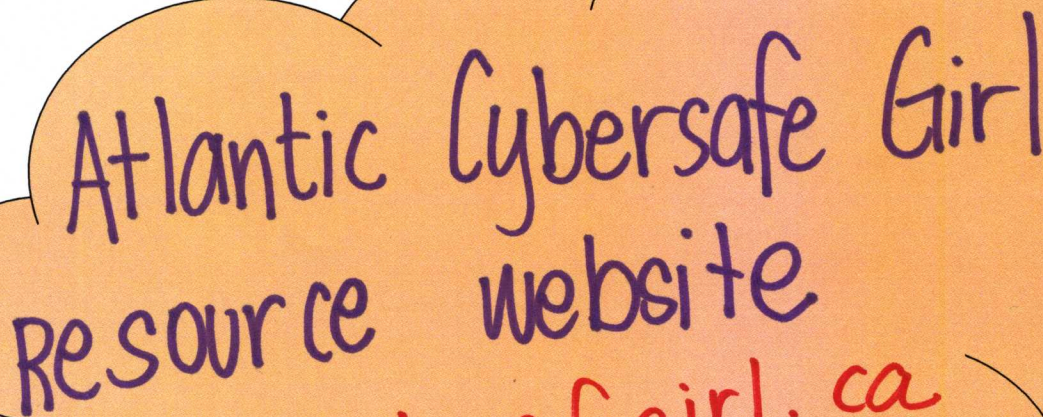 Atlantic Cybersafe Girl
Resource website